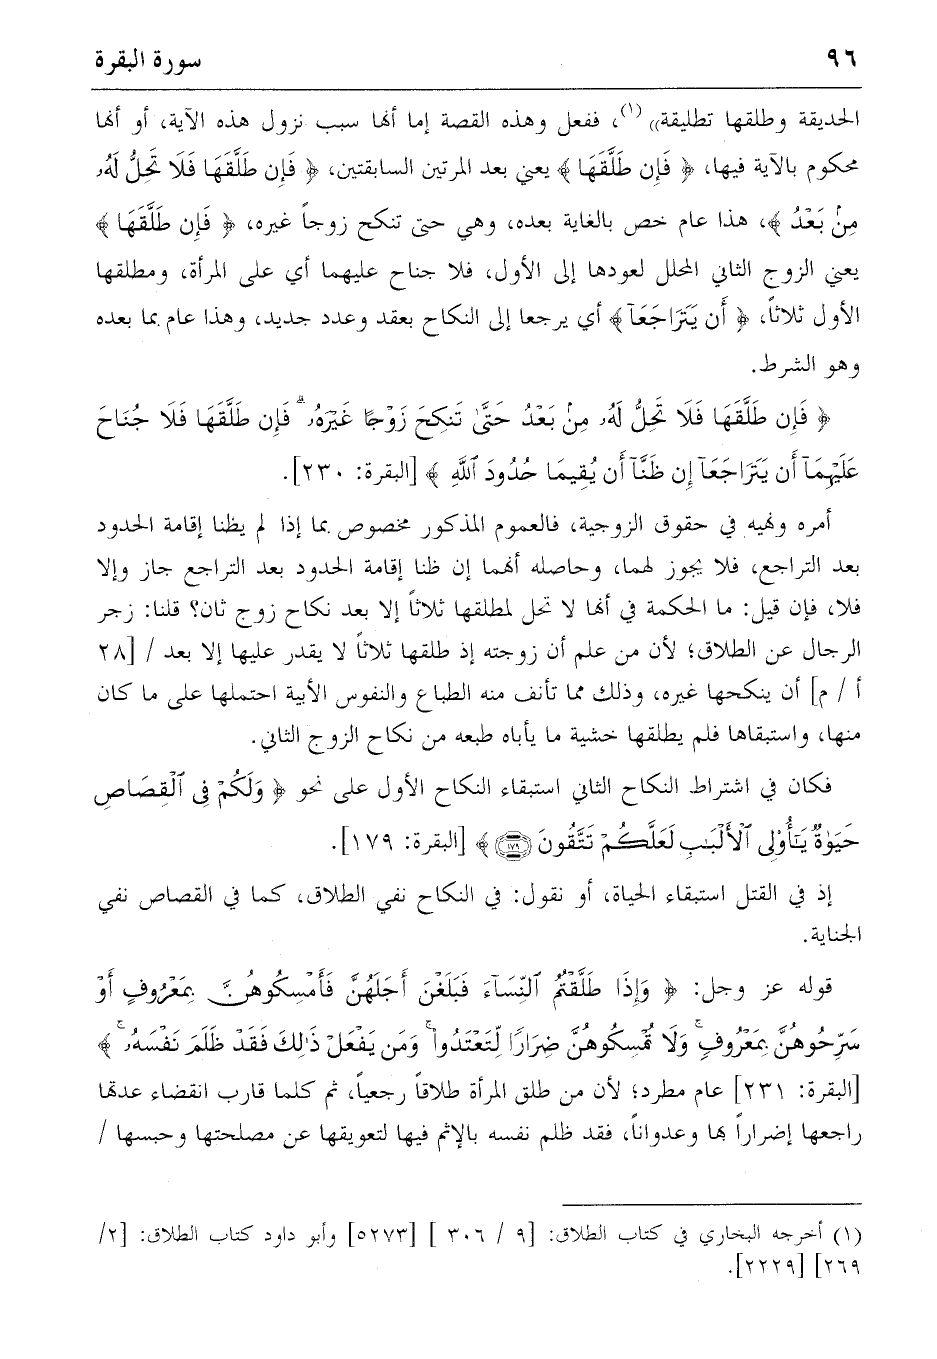 ٩٦ سورة البقرة
الحديقة وطلقها تطليقة» (١)، ففعل وهذه القصة إما أنها سبب نزول هذه الآية، أو أنها
محكوم بالآية فيها، ﴿ فَإِن طَلَّقَهَا ﴾ يعني بعد المرتين السابقتين، ﴿ فَإِن طَلَّقَهَا فَلَا تَحِلُّ لَهُۥ
مِنۢ بَعْدُ ﴾، هذا عام خص بالغاية بعده، وهي حتى تنكح زوجاً غيره، ﴿ فَإِن طَلَّقَهَا ﴾
يعني الزوج الثاني المحلل لعودها إلى الأول، فلا جناح عليهما أي على المرأة، ومطلقها
الأول ثلاثاً، ﴿ أَن يَتَرَاجَعَآ ﴾ أي يرجعا إلى النكاح بعقد وعدد جديد، وهذا عام بما بعده
وهو الشرط.
﴿ فَإِن طَلَّقَهَا فَلَا تَحِلُّ لَهُۥ مِنۢ بَعْدُ حَتَّىٰ تَنكِحَ زَوْجًا غَيْرَهُۥ ۗ فَإِن طَلَّقَهَا فَلَا جُنَاحَ
عَلَيْهِمَآ أَن يَتَرَاجَعَآ إِن ظَنَّآ أَن يُقِيمَا حُدُودَ ٱللَّهِ ﴾ [البقرة: ٢٣٠].
أمره ونهيه في حقوق الزوجية، فالعموم المذكور مخصوص بما إذا لم يظنا إقامة الحدود
بعد التراجع، فلا يجوز لهما، وحاصله أنهما إن ظنا إقامة الحدود بعد التراجع جاز وإلا
فلا، فإن قيل: ما الحكمة في أنها لا تحل لمطلقها ثلاثاً إلا بعد نكاح زوج ثان؟ قلنا: زجر
الرجال عن الطلاق؛ لأن من علم أن زوجته إذ طلقها ثلاثاً لا يقدر عليها إلا بعد / [٢٨
أ / م] أن ينكحها غيره، وذلك مما تأنف منه الطباع والنفوس الأبية احتملها على ما كان
منها، واستبقاها فلم يطلقها خشية ما يأباه طبعه من نكاح الزوج الثاني.
فكان في اشتراط النكاح الثاني استبقاء النكاح الأول على نحو ﴿ وَلَكُمْ فِى ٱلْقِصَاصِ
حَيَوٰةٌ يَـٰٓأُو۟لِى ٱلْأَلْبَـٰبِ لَعَلَّكُمْ تَتَّقُونَ ١٧٩ ﴾ [البقرة: ١٧٩].
إذ في القتل استبقاء الحياة، أو نقول: في النكاح نفي الطلاق، كما في القصاص نفي
الجناية.
قوله عز وجل: ﴿ وَإِذَا طَلَّقْتُمُ ٱلنِّسَآءَ فَبَلَغْنَ أَجَلَهُنَّ فَأَمْسِكُوهُنَّ بِمَعْرُوفٍ أَوْ
سَرِّحُوهُنَّ بِمَعْرُوفٍ ۚ وَلَا تُمْسِكُوهُنَّ ضِرَارًا لِّتَعْتَدُوا۟ ۚ وَمَن يَفْعَلْ ذَٰلِكَ فَقَدْ ظَلَمَ نَفْسَهُۥ ۚ ﴾
[البقرة: ٢٣١] عام مطرد؛ لأن من طلق المرأة طلاقاً رجعياً، ثم كلما قارب انقضاء عدتها
راجعها إضراراً بها وعدواناً، فقد ظلم نفسه بالإثم فيها لتعويقها عن مصلحتها وحبسها /
(١) أخرجه البخاري في كتاب الطلاق: [٩ / ٣٠٦ ] [٥٢٧٣] وأبو داود كتاب الطلاق: [٢/
٢٦٩] [٢٢٢٩].